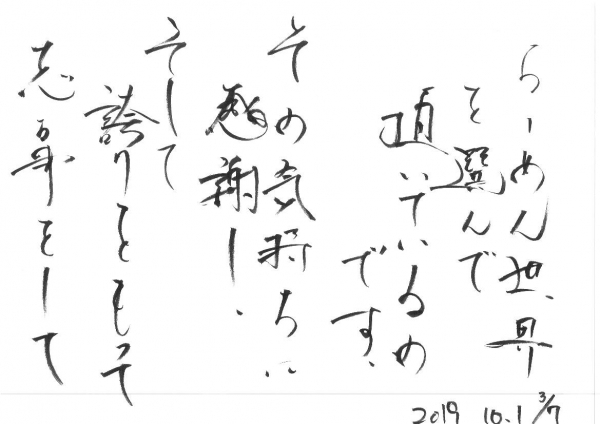 らーめん世界
を選んで
頂いているの
です、
その気持ちに
感謝し、
そして
誇りをもって
志事をして
2019 10.1 3/7